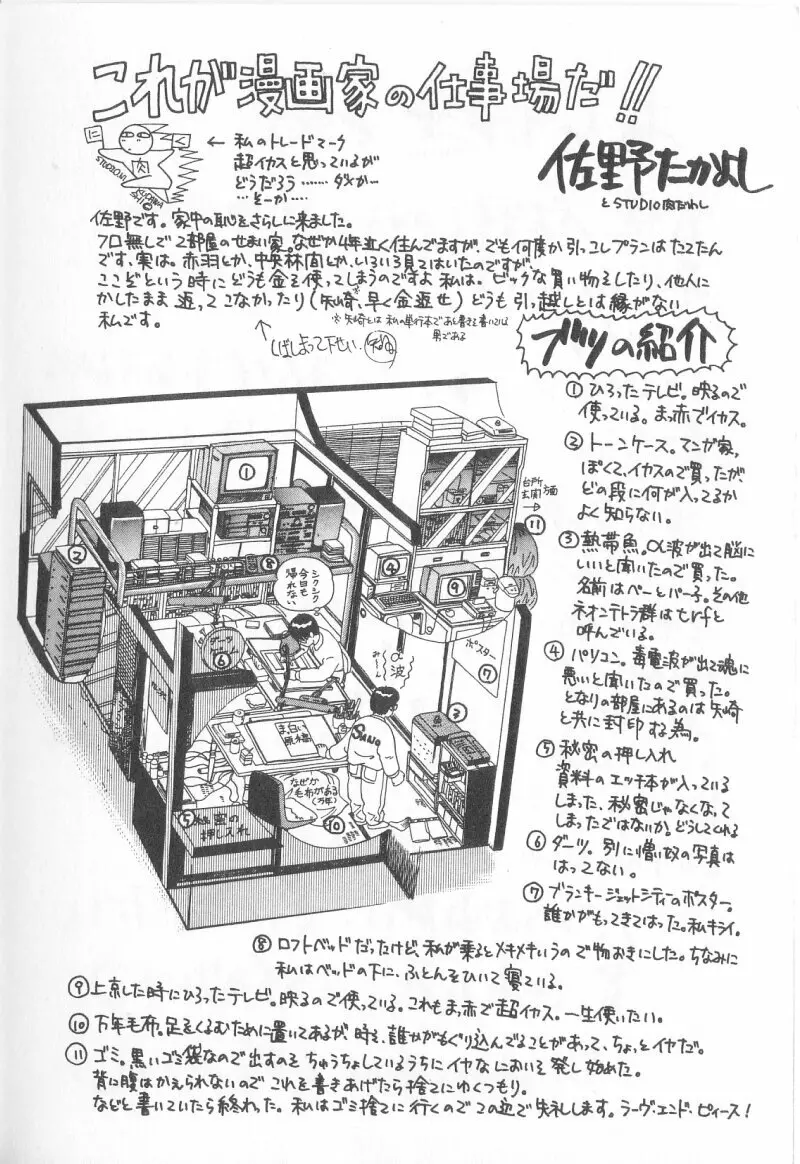 これが漫画家の仕事場だ!!
に
く
肉
← 私のトレードマーク
超イカスと思っているが
どうだろう……ダメか…
…そーか…
佐野たかよし
とSTUDIO肉たわし
佐野です。家中の恥をさらしに来ました。
フロ無しで2部屋のせまい家。なぜか4年近く住んでますが、でも何度か引っこしプランはたてたん
です、実は。赤羽とか、中央林間とか、いろいろ見てはいたのですが、
ここぞという時にどうも金を使ってしまうのですよ私は。ビックな買い物をしたり、他人に
かしたまま返ってこなかったり(矢崎※、早く金返せ)どうも引っ越しとは縁がない
私です。
※矢崎とは私の単行本であと書きを書いている
男である
ブツの紹介
① ひろったテレビ。映るので
使っている。まっ赤でイカス。
② トーンケース。マンガ家
ぽくて、イカスので買ったが、
どの段に何が入ってるか
よく知らない。
③ 熱帯魚。α波が出て脳に
いいと聞いたので買った。
名前はペーとパー子。その他
ネオンテトラ群はtrfと
呼んでいる。
④ パソコン。毒電波が出て魂に
悪いと聞いたので買った。
となりの部屋にあるのは矢崎
と共に封印する為。
⑤ 秘密の押し入れ
資料のエッチ本が入っている
しまった、秘密じゃなくなって
しまったではないか。どうしてくれる
⑥ ダーツ。別に憎い奴の写真は
はってない。
⑦ ブランキージェットシティーのポスター。
誰かがもってきてはった。私キライ。
①
②
台所
玄関方面
→
⑪
⑧
シクシク
今日も
帰れない
④
⑨
ダーツ
ゲーム
⑥
ポスター
⑦
α波
み〜
③
まっ白い
原稿
SANO
なぜか
毛布がある
(万年)
⑤秘密の
押し入れ
⑩
⑧ ロフトベッドだったけど、私が乗るとメキメキいうので物おきにした。ちなみに
私はベッドの下に、ふとんをひいて寝ている。
⑨ 上京した時にひろったテレビ。映るので使っている。これもまっ赤で超イカス。一生使いたい。
⑩ 万年毛布。足をくるむために置いてあるが、時々、誰かがもぐり込んでることがあって、ちょっとイヤだ。
⑪ ゴミ。黒いゴミ袋なので出すのをちゅうちょしているうちにイヤなにおいを発し始めた。
背に腹はかえられないのでこれを書きあげたら捨てにゆくつもり。
などと書いていたら終わった。私はゴミ捨てに行くのでこの辺で失礼します。ラーヴ・エンド・ピィース!